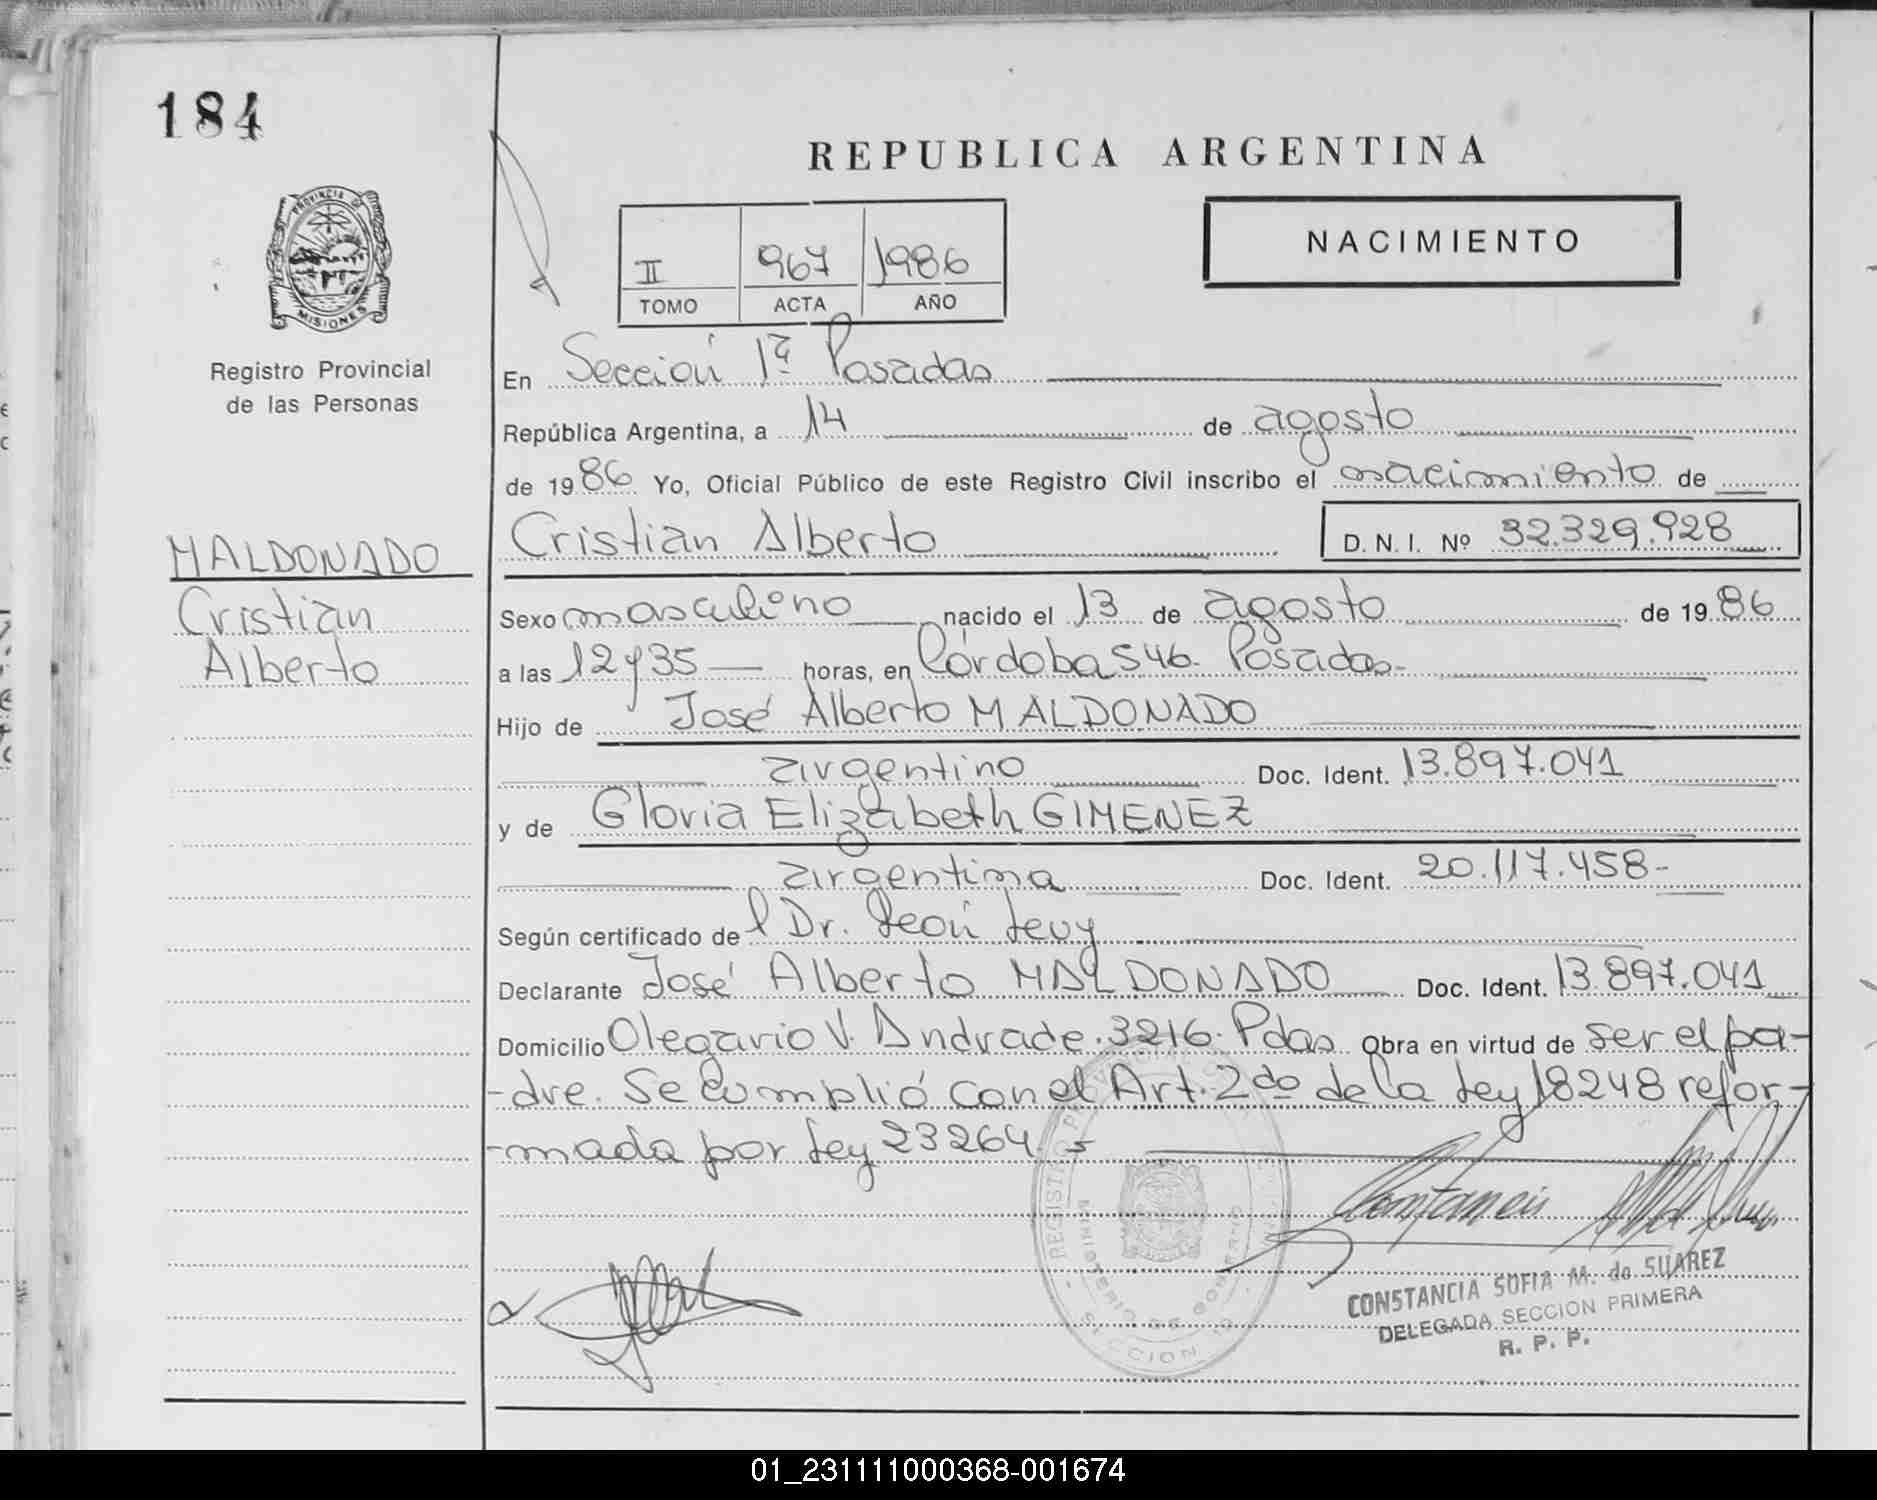 184
REPUBLICA ARGENTINA
PROVINCIA DE
MISIONES
Registro Provincial
de las Personas
II 967 1986
TOMO ACTA AÑO
NACIMIENTO
En Sección 1ª Posadas
República Argentina, a 14 de agosto
de 1986 Yo, Oficial Público de este Registro Civil inscribo el nacimiento de
Cristian Alberto D. N. I. Nº 32.329.928
MALDONADO
Cristian
Alberto
Sexo masculino nacido el 13 de agosto de 1986
a las 12 y 35 horas, en Córdoba 546. Posadas-
Hijo de José Alberto MALDONADO
argentino Doc. Ident. 13.897.041
y de Gloria Elizabeth GIMENEZ
argentina Doc. Ident. 20.117.458-
Según certificado del Dr. León Levy
Declarante José Alberto MALDONADO Doc. Ident. 13.897.041
Domicilio Olegario V. Andrade. 3216. Pdas Obra en virtud de ser el pa-
-dre. Se cumplió con el Art. 2do de la Ley 18248 refor-
-mada por Ley 23264.-
REGISTRO PROVINCIAL
MINISTERIO DE GOBIERNO
SECCION
CONSTANCIA SOFIA M. de SUAREZ
DELEGADA SECCION PRIMERA
R. P. P.
01_231111000368-001674